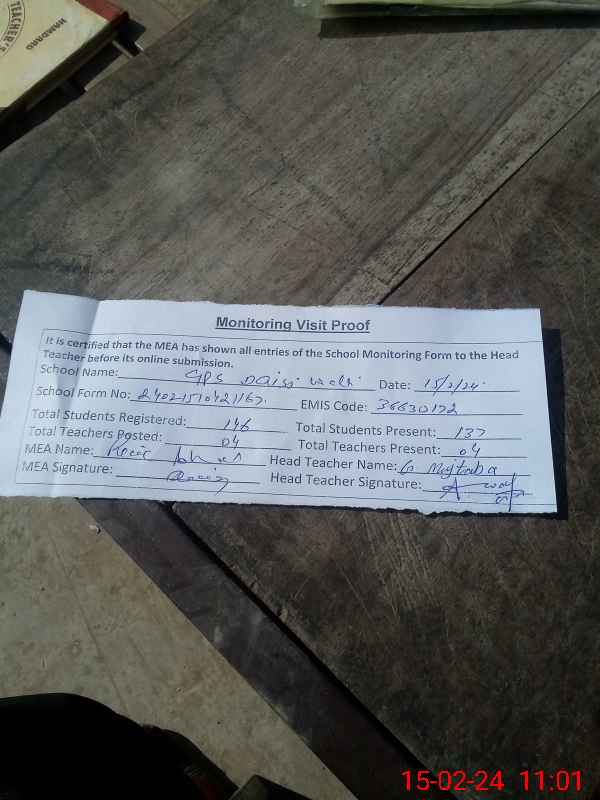 TEACHER'S
HAMDARD
Monitoring Visit Proof
It is certified that the MEA has shown all entries of the School Monitoring Form to the Head
Teacher before its online submission.
School Name: GPS Date: 15/2/24
School Form No: EMIS Code: 36630172
Total Students Registered: 146 Total Students Present: 137
Total Teachers Posted: 04 Total Teachers Present: 04
MEA Name: Head Teacher Name: G Mujtaba
MEA Signature: Head Teacher Signature:
15-02-24 11:01